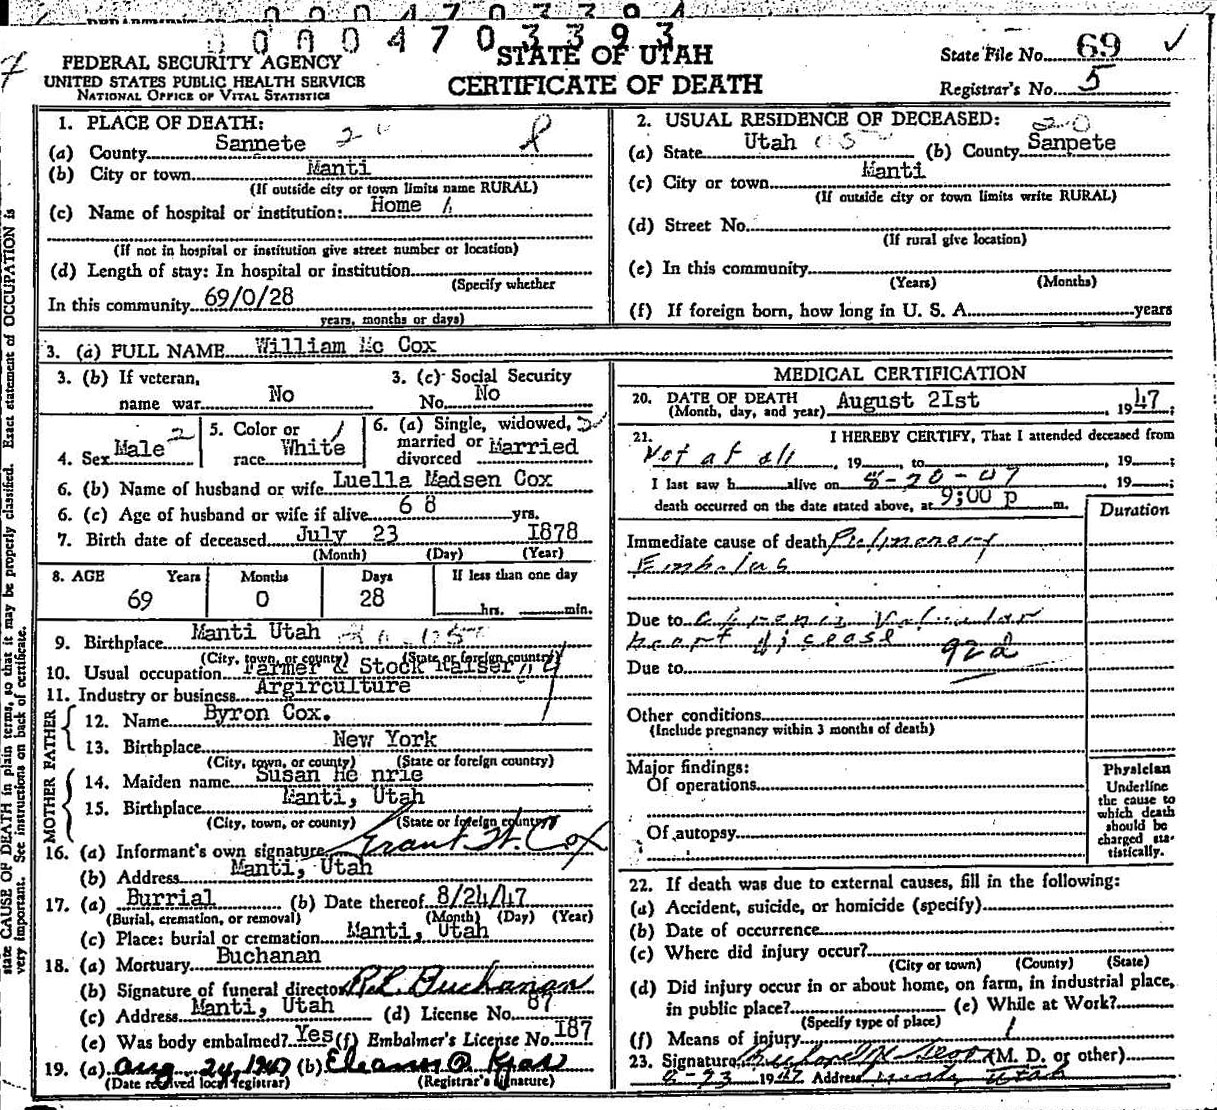 0000470339
00004703393
7
FEDERAL SECURITY AGENCY
UNITED STATES PUBLIC HEALTH SERVICE
NATIONAL OFFICE OF VITAL STATISTICS
STATE OF UTAH
CERTIFICATE OF DEATH
State File No. 69 ✓
Registrar's No. 5
state CAUSE OF DEATH in plain terms, so that it may be properly classified. Exact statement of OCCUPATION is
very important. See instructions on back of certificate.
1. PLACE OF DEATH:
(a) County Sannete
(b) City or town Manti
(If outside city or town limits name RURAL)
(c) Name of hospital or institution: Home
(If not in hospital or institution give street number or location)
(d) Length of stay: In hospital or institution
(Specify whether
In this community 69/0/28
years, months or days)
2. USUAL RESIDENCE OF DECEASED: 20
(a) State Utah (b) County Sanpete
(c) City or town Manti
(If outside city or town limits write RURAL)
(d) Street No.
(If rural give location)
(e) In this community
(Years) (Months)
(f) If foreign born, how long in U. S. A. years
3. (a) FULL NAME William Mc Cox
3. (b) If veteran, name war No
3. (c) Social Security No. No
4. Sex Male 2
5. Color or race White
6. (a) Single, widowed, married or divorced Married
6. (b) Name of husband or wife Luella Madsen Cox
6. (c) Age of husband or wife if alive 68 yrs.
7. Birth date of deceased July 23 I878
(Month) (Day) (Year)
8. AGE Years Months Days If less than one day
69 0 28 hrs. min.
9. Birthplace Manti Utah
(City, town, or county) (State or foreign country)
10. Usual occupation Farmer & Stock Raiser
11. Industry or business Argirculture
FATHER
12. Name Byron Cox.
13. Birthplace New York
(City, town, or county) (State or foreign country)
MOTHER
14. Maiden name Susan He nrie
15. Birthplace Manti, Utah
(City, town, or county) (State or foreign country)
16. (a) Informant's own signature Grant W. Cox
(b) Address Manti, Utah
17. (a) Burrial (b) Date thereof 8/24/47
(Burial, cremation, or removal) (Month) (Day) (Year)
(c) Place: burial or cremation Manti, Utah
18. (a) Mortuary Buchanan
(b) Signature of funeral director R.L. Buchanan
(c) Address Manti, Utah (d) License No. 87
(e) Was body embalmed? Yes (f) Embalmer's License No. I87
19. (a) Aug 24, 1947 (b) Eleanor
(Date received local registrar) (Registrar's signature)
MEDICAL CERTIFICATION
20. DATE OF DEATH
(Month, day, and year) August 2Ist, 1947;
21. I HEREBY CERTIFY, That I attended deceased from
Not at all, 19 , to , 19 ;
I last saw h alive on 8-20-47, 19 ;
death occurred on the date stated above, at 9;00 p m.
Duration
Immediate cause of death Pulmonary
Embolus
Due to Chronic Valvular
heart disease 92d
Due to
Other conditions
(Include pregnancy within 3 months of death)
Major findings:
Of operations
Of autopsy
Physician
Underline
the cause to
which death
should be
charged sta-
tistically.
22. If death was due to external causes, fill in the following:
(a) Accident, suicide, or homicide (specify)
(b) Date of occurrence
(c) Where did injury occur?
(City or town) (County) (State)
(d) Did injury occur in or about home, on farm, in industrial place,
in public place? (e) While at Work?
(Specify type of place)
(f) Means of injury
23. Signature (M. D. or other)
8-23 1947 Address Utah